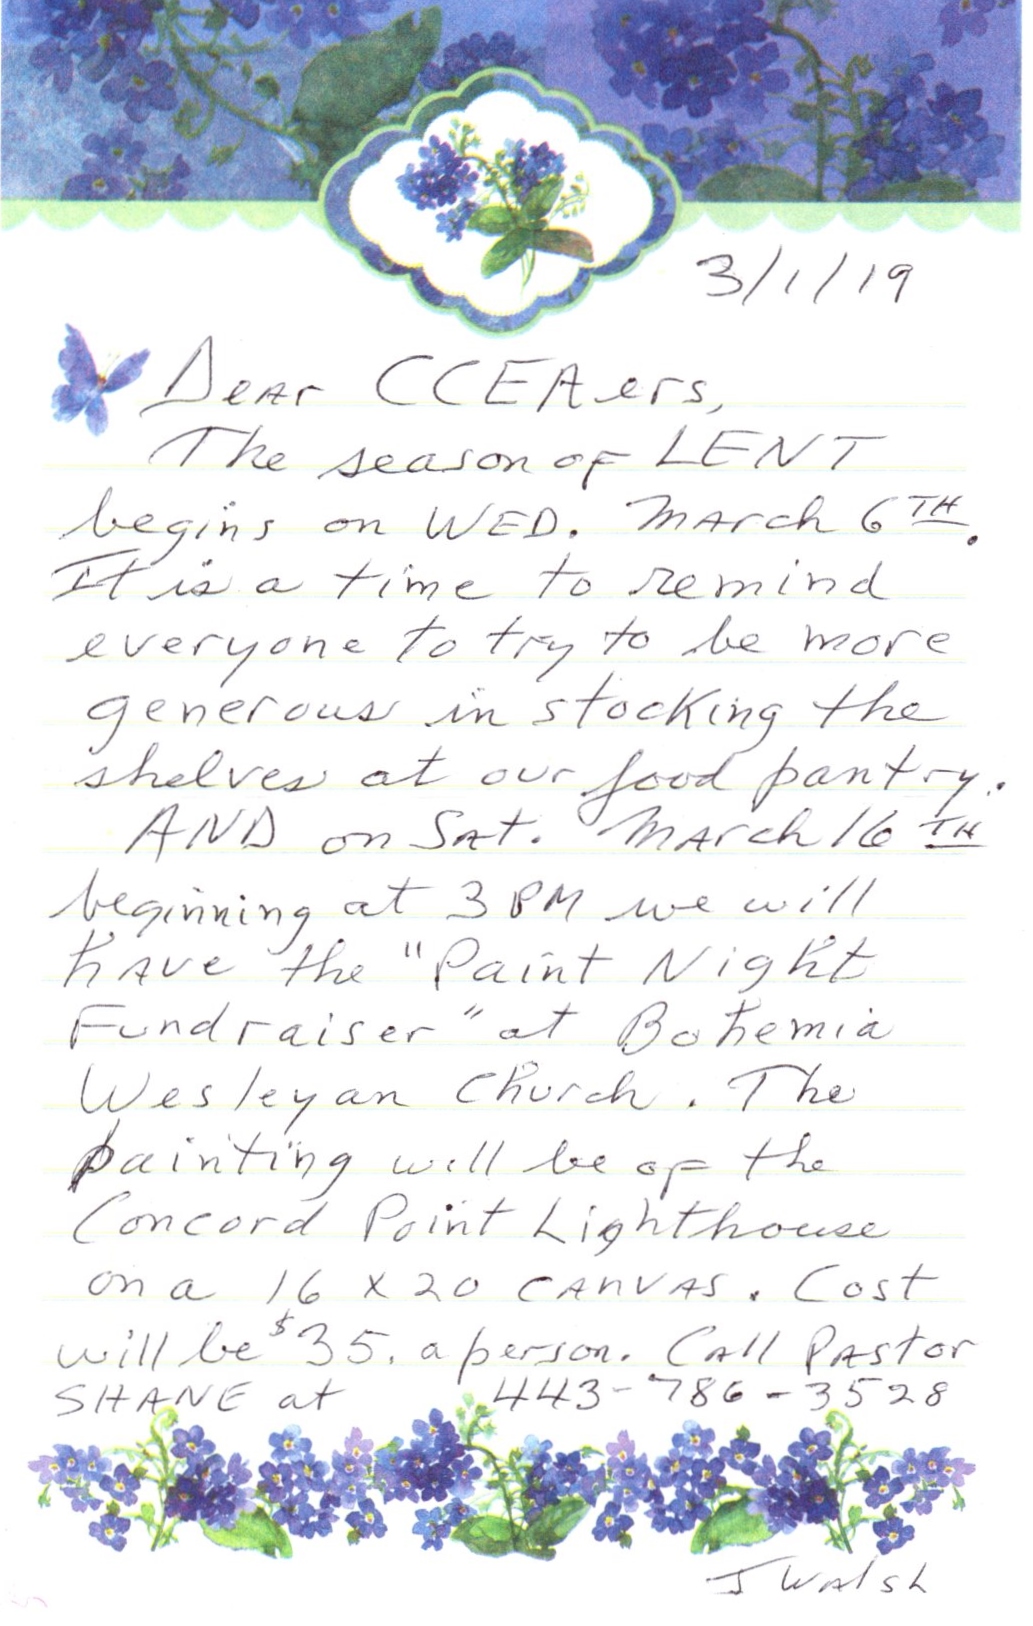 3/1/19
Dear CCEAers,
The season of LENT
begins on WED. March 6TH.
It is a time to remind
everyone to try to be more
generous in stocking the
shelves at our food pantry.
AND on SAt. March 16TH
beginning at 3 PM we will
have the "Paint Night
Fundraiser" at Bohemia
Wesleyan Church. The
painting will be of the
Concord Point Lighthouse
on a 16 x 20 CANVAS. Cost
will be $35. a person. CAll PAStor
SHANE at 443-786-3528
J WAlsh